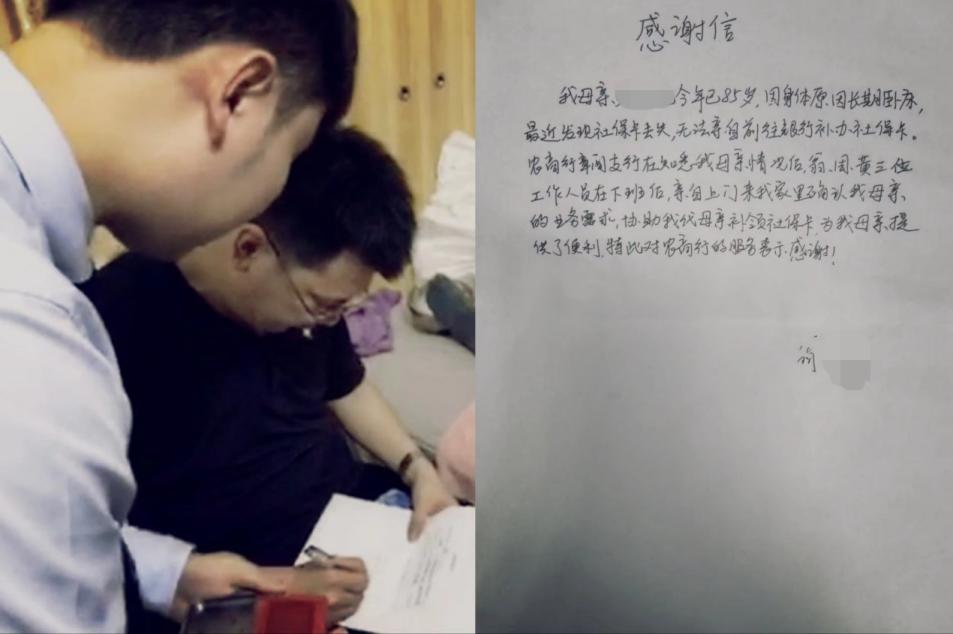 感谢信
我母亲 今年已85岁,因身体原因长期卧床,
最近发现社保卡丢失,无法亲自前往银行补办社保卡。
农商行章间支行在知悉我母亲情况后,翁、周、黄三位
工作人员在下班后,亲自上门来我家里确认我母亲
的业务需求,协助我代母亲补领社保卡,为我母亲提
供了便利,特此对农商行的服务表示感谢!